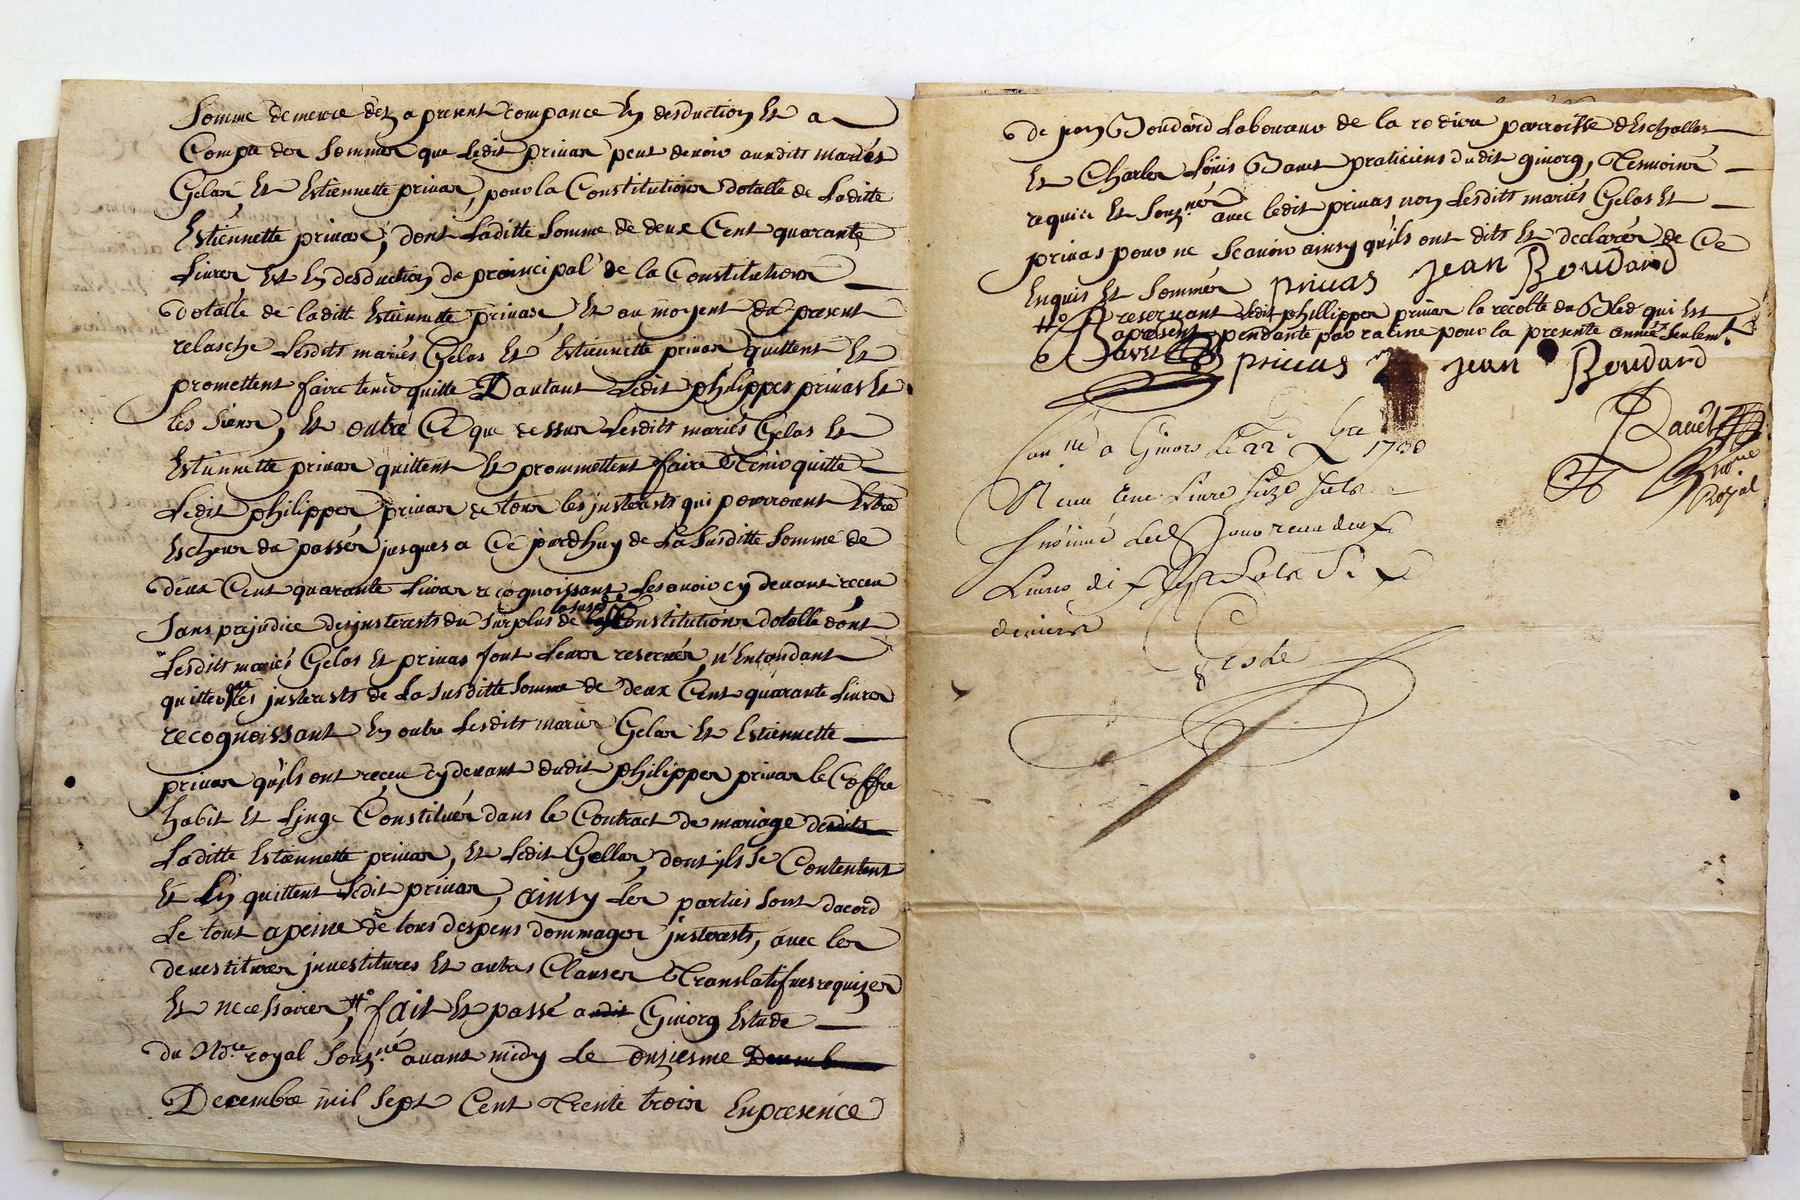 Somme de merce dez a present compance En desduction Et a
Compte des Sommes que Ledit privas peut devoir auxdits mariés
Gelas Et Estiennette privas, pour la Constitution dotalle de Laditte
Estiennette privas, dont Laditte Somme de deux Cent quarante
Livres Est En desduction du principal de la Constitution
dotalle de laditte Estiennette privas, Et au moyent du present
relasche Lesdits mariés Gelas Et Estiennette privas quittent Et
promettent faire tenir quitte Dautant Ledit philippes privas Et
les Siens, Et outre Ce que dessus Lesdits mariés Gelas Et
Estiennette privas quittent Et prommettent faire Tenir quitte
Ledit philippes privas de tous les justerests qui pourroient Estre
Escheus du passér jusques a Ce jourdhuy de La Susditte Somme de
deux Cent quarante Livres recognoissant Les avoir cy devant receu
Sans prejudice desjusterests du Surplus de Constitution dotalle dont
Lesdits mariés Gelas Et privas font Leurs reserves, n'Entandant
quitter que les justerests de La Susditte Somme de deux Cent quarante Livres
recognoissant En outre Lesdits mariés Gelas Et Estiennette
privas qu'ils ont receu cydevant dudit philippes privas le Coffre
habit Et Linge Constitués dans le Contract de mariage desdits
Laditte Estiennette privas, Et Ledit Gellas, dont jls Se Contentent
Et En quittent Ledit privas, ainsy Les parties Sont dacord
Le tout a peine de tous despens dommages justerests, avec les
devestitures jnvestitures Et autres Clauses Translatifves requizes
Et necessaires, fait Et passé audit Givors Estude
du No.re royal Souz.né avant midy Le onziesme
Decembre mil Sept Cent Trente trois En presence
de jean Boudard Laboureur de la rodiere parroisse dEschallas
Et Charles Loüis Bavet praticiens dudit givors, Temoins
requis Et Souz.nés avec ledit privas non Lesdits mariés Gelas Et
privas pour ne Scavoir ainsy qu'ils ont dits Et declarés de Ce
Enquis Et Sommés privas Jean Boudard
reservant Ledit phillippes privas la recolte du Bled qui Est
apresent pendante par racine pour la presente année Seulem.t
Bavet privas Jean Boudard
a Givors Le 22 Xbre 1733
Bavet
No.re
Royal
Livre Seize Sols

Livres dix Sept Sols Six
deniers